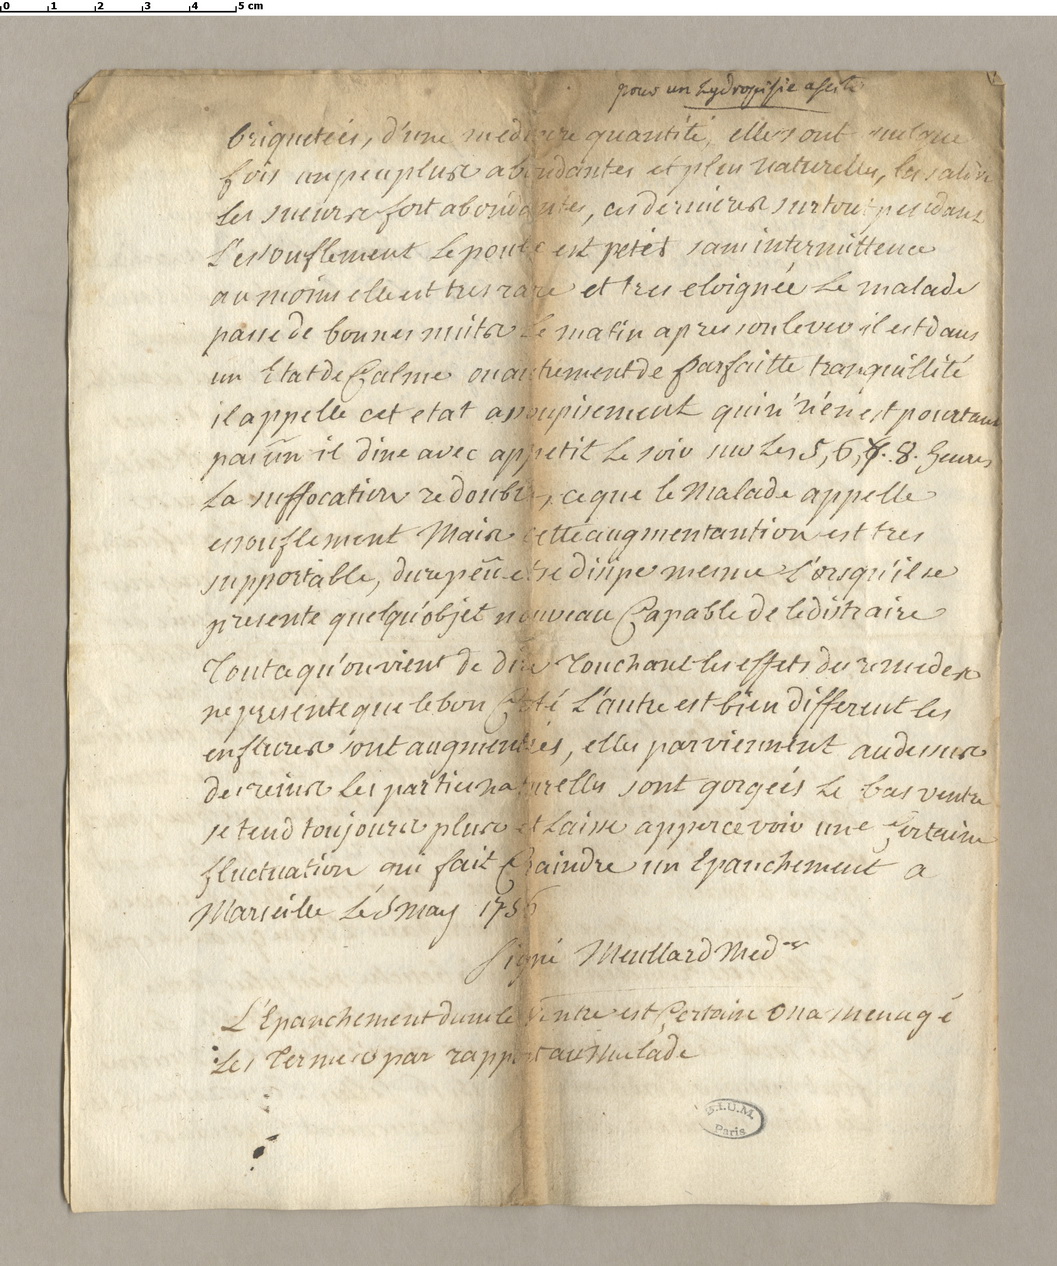 0 1 2 3 4 5 cm
pour un hydropisie assite
briquetées, d'une mediocre quantité, elles sont quelque
fois un peu plus abondantes et plus naturelles, la salive
Les sueurs fort abondantes, ces dernieres surtout pendant
L'essouflement Le pouls est petit sans intermittence
au moins elle est tres rare et tres eloignée Le malade
passe de bonnes nuits Le matin apres son lever il est dans
un Etat de Calme ou autrement de parfaitte tranquillité
il appelle cet etat assoupisement qui n'en est pourtant
pas un il dine avec appetit Le soir sur Les 5, 6, 7. 8. heures
La suffocation redouble, ce que le Malade appelle
essouflement Mais cette augmentantion est tres
supportable, dure peu et se disipe mesme L'orsqu'il se
presente quelqu'objet nouveau Capable de le distraire
Tout ce qu'on vient de dire Touchant les effets du remedes
ne presente que le bon Coté L'autre est bien different les
enflures sont augmentées, elles parviennent au dessus
des reins Les parties naturelles sont gorgées Le bas ventre
se tend toujours plus et Laisse appercevoir une Certaine
fluctuation qui fait Craindre un Epanchement a
Marseille Le 5 may 1756
Signé Meullard Med.er
L'Epanchement dans le Ventre est Certain On a menagé
Les Termes par rapport au Malade
B.I.U.M.
Paris